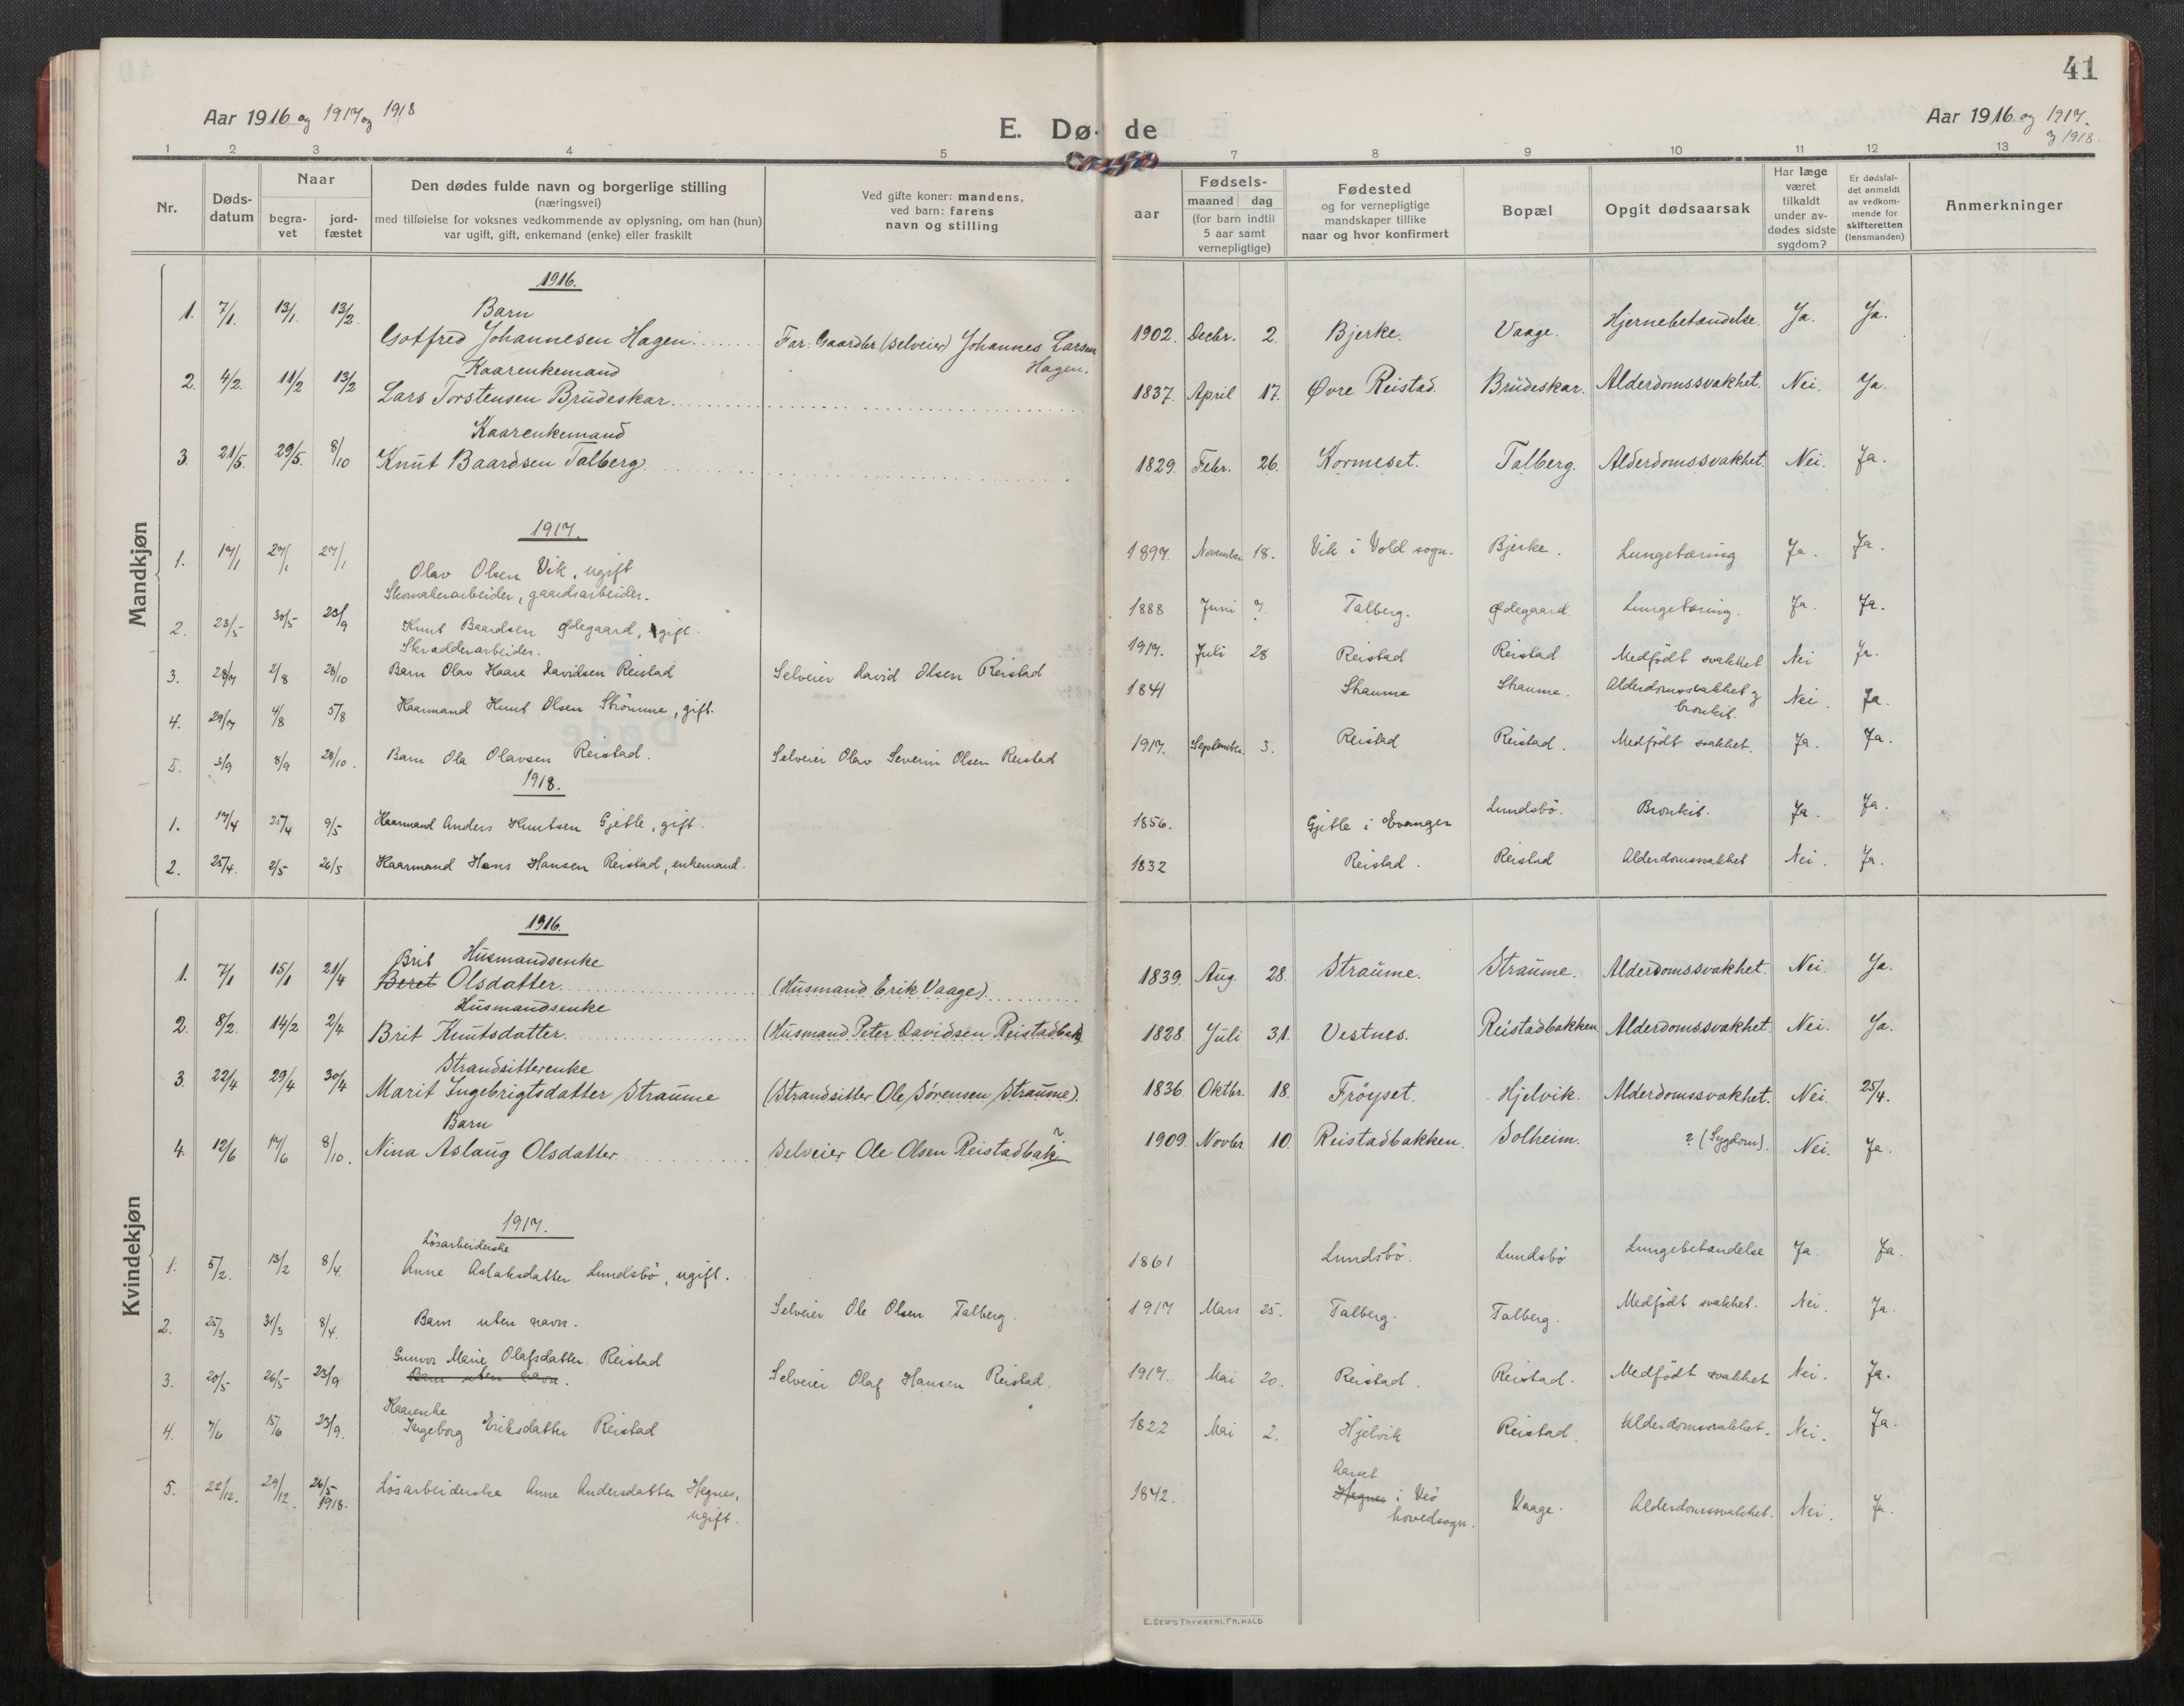 41
Aar 1916 og 1917 og 1918
E. Døde
Aar 1916 og 1917.
og 1918.
1 2 3 4 5 7 8 9 10 11 12 13
Nr.
Døds-
datum
Naar
begra-
vet
jord-
fæstet
Den dødes fulde navn og borgerlige stilling
(næringsvei)
med tilføielse for voksnes vedkommende av oplysning, om han (hun)
var ugift, gift, enkemand (enke) eller fraskilt
Ved gifte koner: mandens,
ved barn: farens
navn og stilling
Fødsels-
aar
maaned dag
(for barn indtil
5 aar samt
vernepligtige)
Fødested
og for vernepligtige
mandskaper tillike
naar og hvor konfirmert
Bopæl
Opgit dødsaarsak
Har læge
været
tilkaldt
under av-
dødes sidste
sygdom?
Er dødsfal-
det anmeldt
av vedkom-
mende for
skifteretten
(lensmanden)
Anmerkninger
Mandkjøn
1916.
Barn
1. 7/1. 13/1. 13/2. Gotfred Johannesen Hagen. Far: Gaardbr. (selveier) Johannes Larsen 1902. Decbr. 2. Bjerke. Vaage. Hjernebetændelse. Ja. Ja.
Hagen.
Kaarenkemand
2. 4/2. 11/2 13/2 Lars Torstensen Brudeskar. 1837. April 17. Øvre Reistad. Brudeskar. Alderdomssvakhet. Nei. Ja.
Kaarenkemand
3. 21/5. 29/5. 8/10 Knut Baardsen Talberg. 1829. Febr. 26. Kormeset. Talberg. Alderdomssvakhet. Nei. Ja.
1917.
1. 17/1 27/1 27/1 Olav Olsen Vik, ugift 1897. November 18. Vik i Vold sogn. Bjerke. Lungetæring Ja. Ja.
Skomakerarbeider, gaardsarbeider.
2. 23/5 30/5 23/9 Knut Baardsen Ødegaard, gift. 1888 Juni 7. Talberg. Ødegaard. Lungetæring. Ja. Ja.
Skrædderarbeider.
3. 28/7 2/8 28/10 Barn Olav Kaare Davidsen Reistad Selveier David Olsen Reistad 1917. Juli 28 Reistad Reistad Medfödt svakhet Nei Ja.
4. 29/7 4/8 5/8 Kaarmand Knut Olsen Strömme, gift. 1841 Straume Straume. Alderdomssvakhet og Nei. Ja.
bronkit.
5. 3/9 8/9 28/10. Barn Ola Olavsen Reistad. Selveier Olav Severin Olsen Reistad 1917. September 3. Reistad Reistad. Medfödt svakhet. Ja. Ja.
1918.
1. 17/4 25/4 9/5 Kaarmand Anders Knutsen Gjelle, gift. 1856. Gjelle i Evanger Lundsbö. Bronkit. Ja. Ja.
2. 25/4. 2/5 26/5 Kaarmand Hans Hansen Reistad, enkemand. 1832 Reistad. Reistad Alderdomssvakhet Nei. Ja.
Kvindekjøn
1916.
Brit Husmandsenke
1. 7/1 15/1 21/4 Beret Olsdatter. (Husmand Erik Vaage). 1839. Aug. 28. Straume. Straume. Alderdomssvakhet. Nei. Ja.
Husmandsenke
2. 8/2. 14/2 2/4 Brit Knutsdatter. (Husmand Peter Davidsen Reistadbak) 1828. Juli 31. Vestnes. Reistadbakken Alderdomssvakhet. Nei. Ja.
Strandsitterenke
3. 22/4 29/4 30/4 Marit Ingebrigtsdatter Straume (Strandsitter Ole Sørensen Straume). 1836. Oktbr. 18. Fröyset. Hjelvik. Alderdomssvakhet. Nei. 25/4.
Barn
4. 12/6 17/6 8/10. Nina Aslaug Olsdatter Selveier Ole Olsen Reistadbak 1909. Novbr. 10. Reistadbakken. Solheim. ? (Sygdom). Nei. Ja.
1917.
Lösarbeiderske
1. 5/2. 13/2 8/4. Anne Aslaksdatter Lundsbö, ugift. 1861 Lundsbö. Lundsbö Lungebetændelse Ja. Ja.
2. 25/3 31/3 8/4. Barn uten navn. Selveier Ole Olsen Talberg. 1917 Mars 25. Talberg. Talberg. Medfödt svakhet. Nei. Ja.
Gunvor Marie Olafsdatter Reistad
3. 20/5 26/5 23/9 Barn uten navn. Selveier Olaf Hansen Reistad. 1917. Mai 20. Reistad. Reistad. Medfödt svakhet Nei. Ja.
Kaarenke
4. 7/6 15/6 23/9. Ingeborg Eriksdatter Reistad 1822 Mai 2. Hjelvik Reistad. Alderdomssvakhet. Nei. Ja.
5. 22/12. 29/12. 26/5 1918. Lösarbeiderske Anne Andersdatter Hegnes, 1842. Hegnes i Veö Vaage. Alderdomssvakhet. Nei. Ja.
ugift. hovedsogn.
E. SEM'S TRYKKERI, FR.HALD